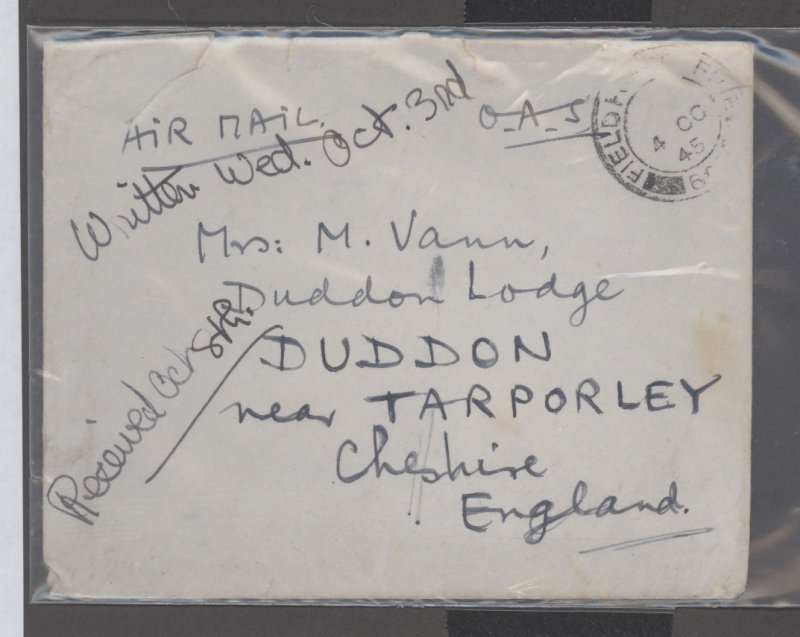 AIR MAIL.
O-A-S
Written Wed. Oct. 3rd
FIELD
4 OC
45
Mrs: M. Vann,
Duddon Lodge
DUDDON
near TARPORLEY
Cheshire
England.
Received Oct 8th.